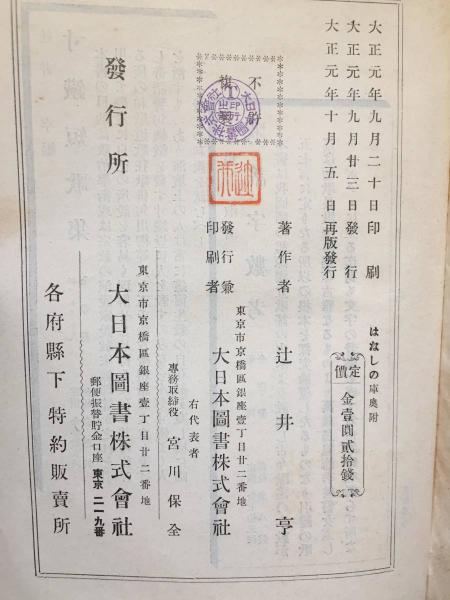 大正元年九月二十日印刷
大正元年九月廿三日發行
大正元年十月五日再版發行
はなしの庫奥附
定價
金壹圓貳拾錢
不許
複製
著作者
辻井亨
發行兼
印刷者
東京市京橋區銀座壹丁目廿二番地
大日本圖書株式會社
右代表者
專務取締役
宮川保全
發行所
東京市京橋區銀座壹丁目廿二番地
大日本圖書株式會社
郵便振替貯金口座東京二一九番
各府縣下
特約販賣所